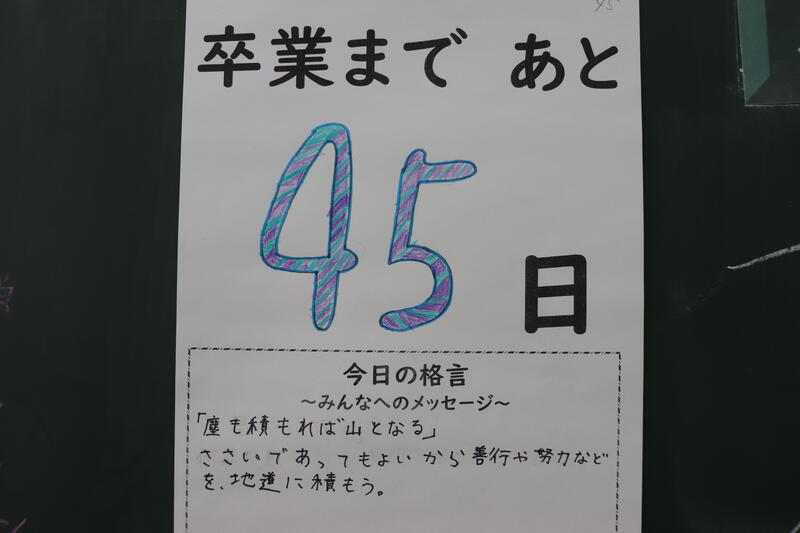 45
卒業まで あと
45
日
今日の格言
～みんなへのメッセージ～
「塵も積もれば山となる」
ささいであってもよいから善行や努力など
を、地道に積もう。